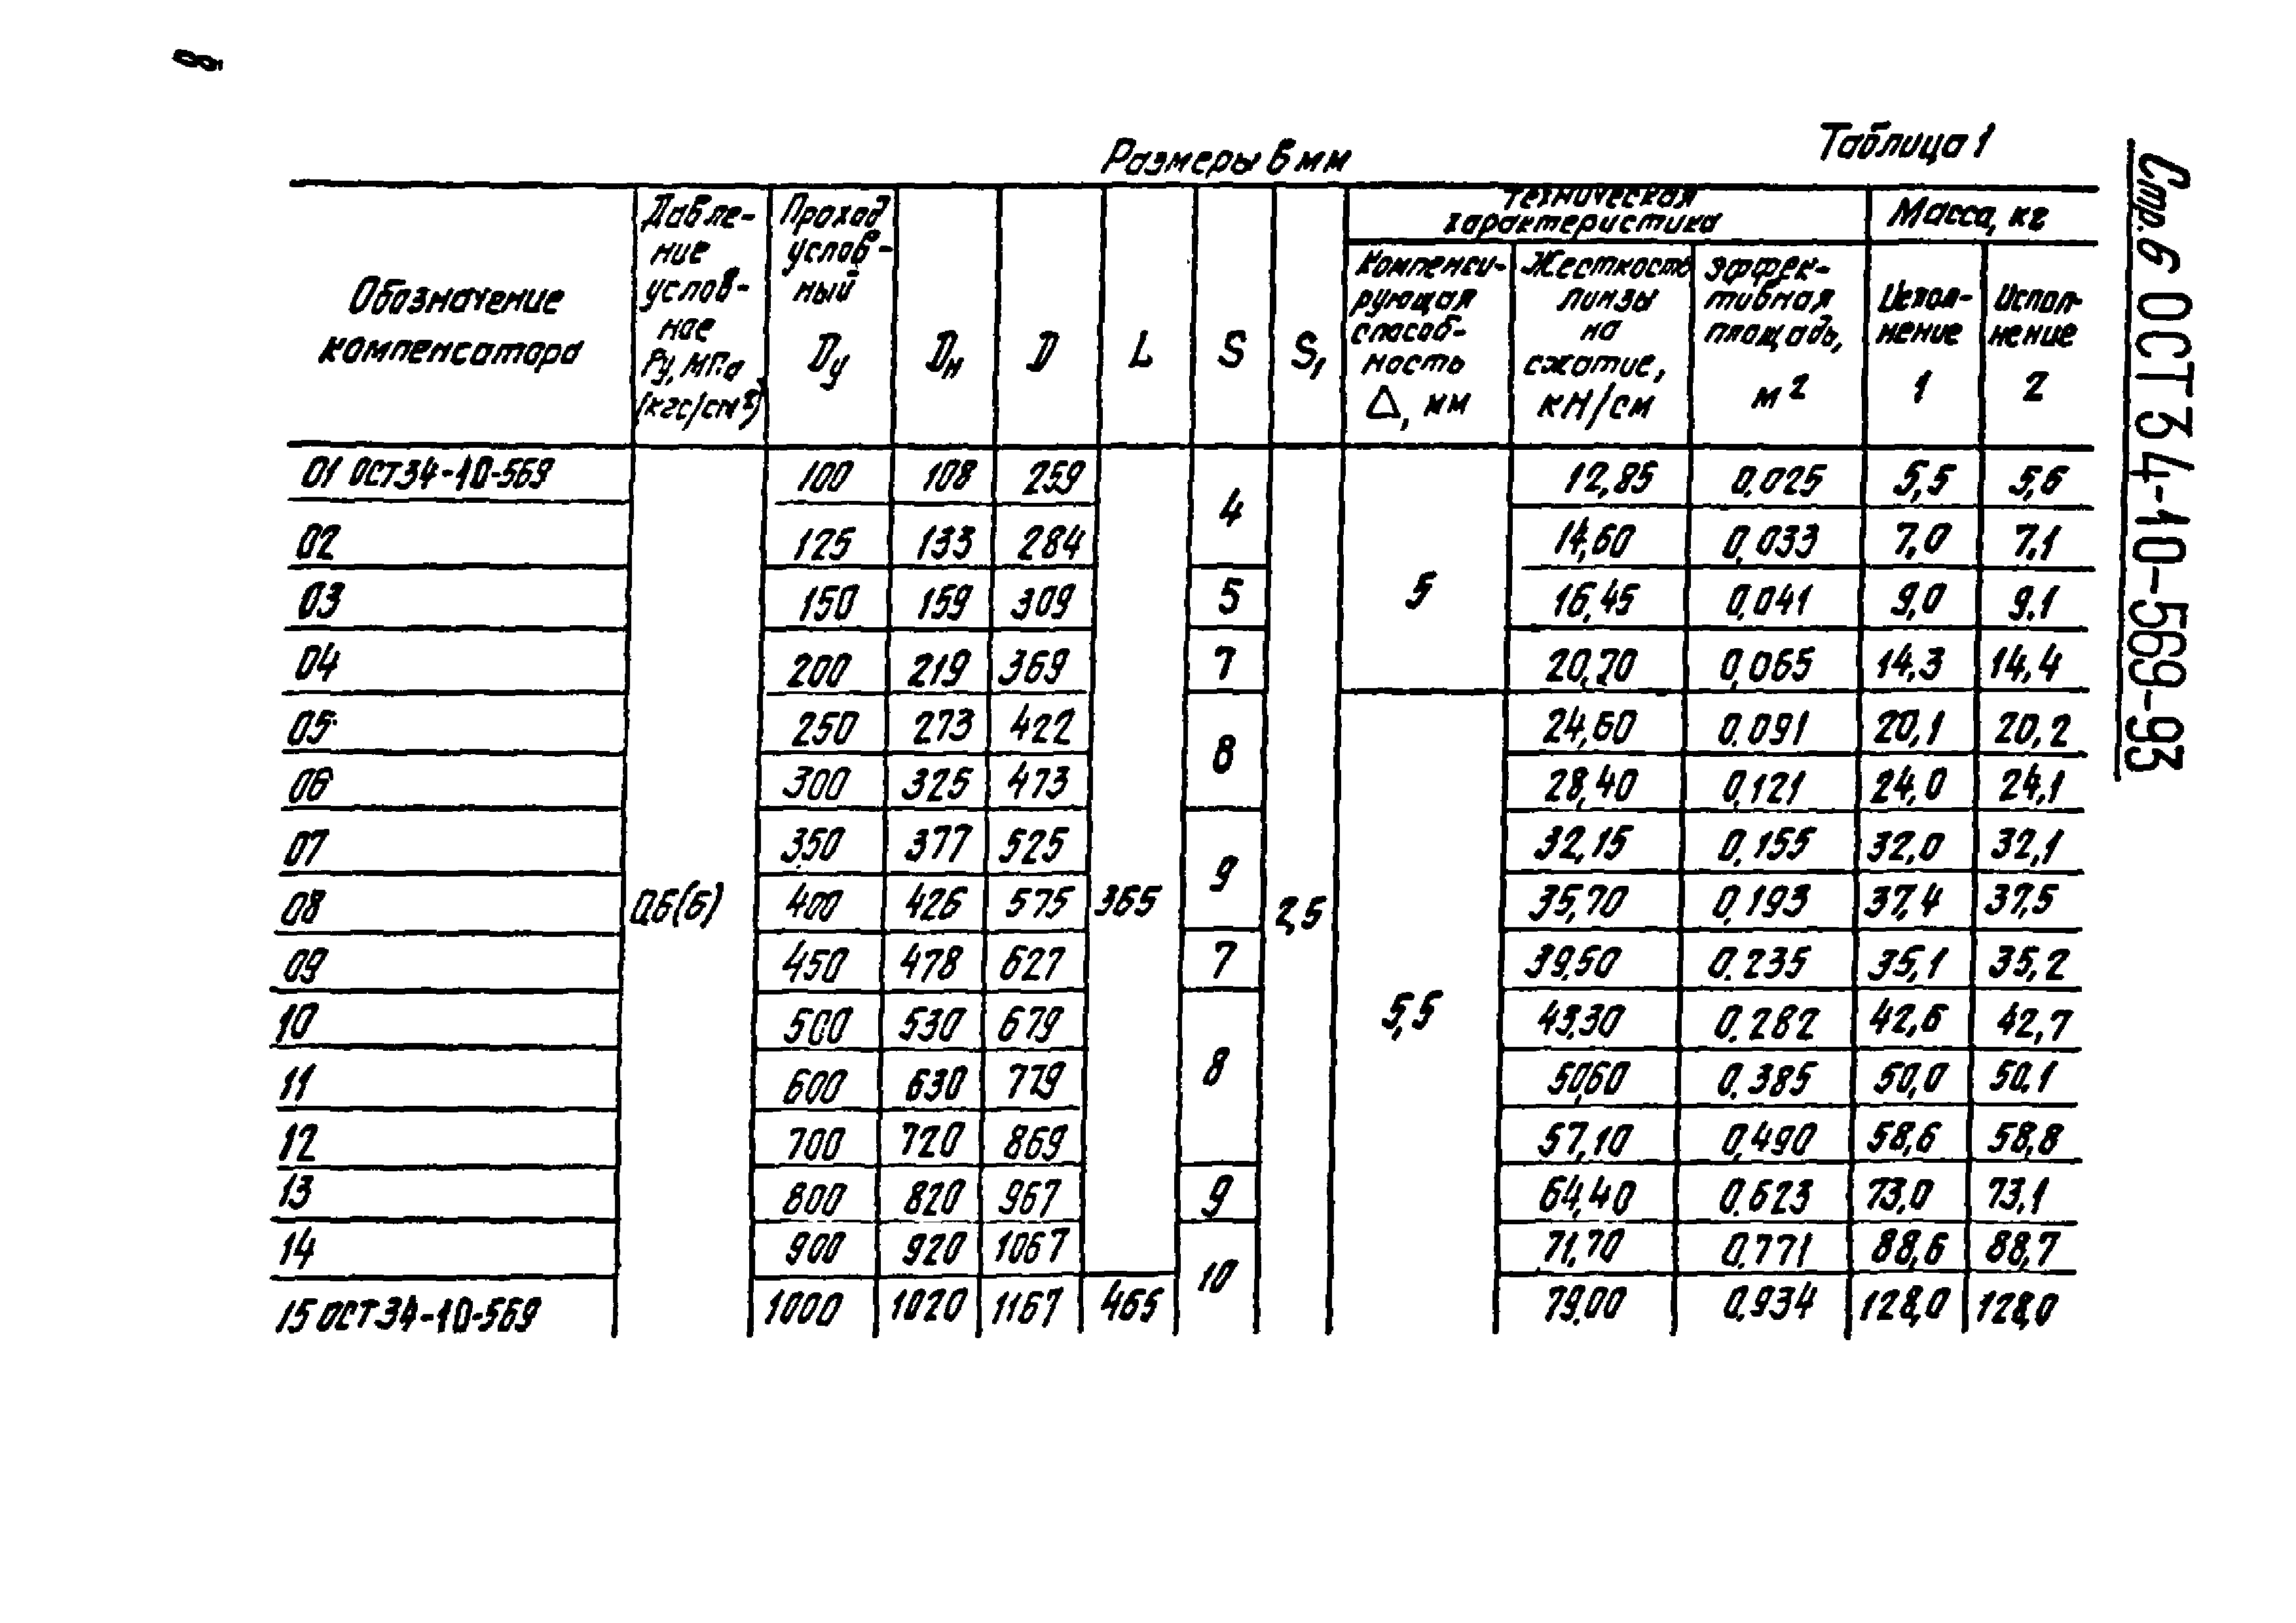 8
Стр. 6 ОСТ 34-10-569-93
Таблица 1
Размеры в мм
Обозначение компенсатора
Давле-
ние
услов-
ное
Ру, МПа
(кгс/см²)
Проход
услов-
ный
Dу
Dн
D
L
S
S₁
Техническая
характеристика
Компенси-
рующая
способ-
ность
Δ, мм
Жесткость
линзы
на
сжатие,
кН/см
Эффек-
тивная
площадь,
м²
Масса, кг
Испол-
нение
1
Испол-
нение
2
01 ОСТ 34-10-569 100 108 259 4 12,85 0,025 5,5 5,6
02 125 133 284 14,60 0,033 7,0 7,1
03 150 159 309 5 5 16,45 0,041 9,0 9,1
04 200 219 369 7 20,70 0,065 14,3 14,4
05 250 273 422 8 24,60 0,091 20,1 20,2
06 300 325 473 28,40 0,121 24,0 24,1
07 350 377 525 9 32,15 0,155 32,0 32,1
08 0,6(6) 400 426 575 365 2,5 35,70 0,193 37,4 37,5
09 450 478 627 7 39,50 0,235 35,1 35,2
10 500 530 679 5,5 43,30 0,282 42,6 42,7
11 600 630 779 8 50,60 0,385 50,0 50,1
12 700 720 869 57,10 0,490 58,6 58,8
13 800 820 967 9 64,40 0,623 73,0 73,1
14 900 920 1067 10 71,70 0,771 88,6 88,7
15 ОСТ 34-10-569 1000 1020 1167 465 79,00 0,934 128,0 128,0